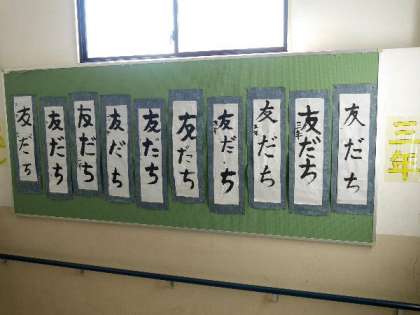 三年
友だち
友だち
三年
友だち
友だち
友だち
友だち
友だち
友だち
友だち
友だち